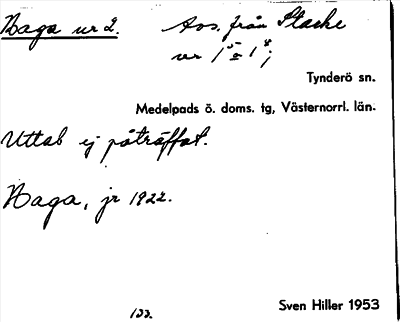 Baga nr 2. Avs. från Stacke
nr 1⁵ & 1⁸;
Tynderö sn.
Medelpads ö. doms. tg, Västernorrl. län.
Uttal ej påträffat.
Baga, jr 1922.
122.
Sven Hiller 1953